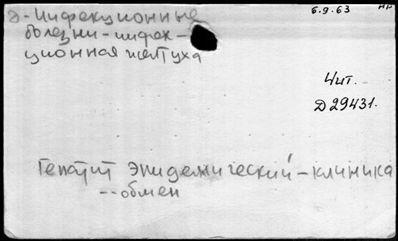 2-Инфекционные
болезни-инфек-
ционная желтуха
6.9.63
Чит.
Д29431.
Гепатит эпидемический-клиника
--обмен